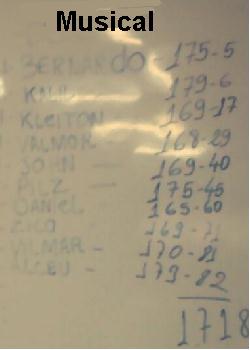 Musical
BERNARDO - 175-5
KALIL 179-6
KLEITON 169-17
VALMOR - 168-29
JOHN - 169-40
PILZ - 175-45
DANIEL 165-60
ZICO 169-71
VILMAR - 170-81
ALCEU - 179-82
1718